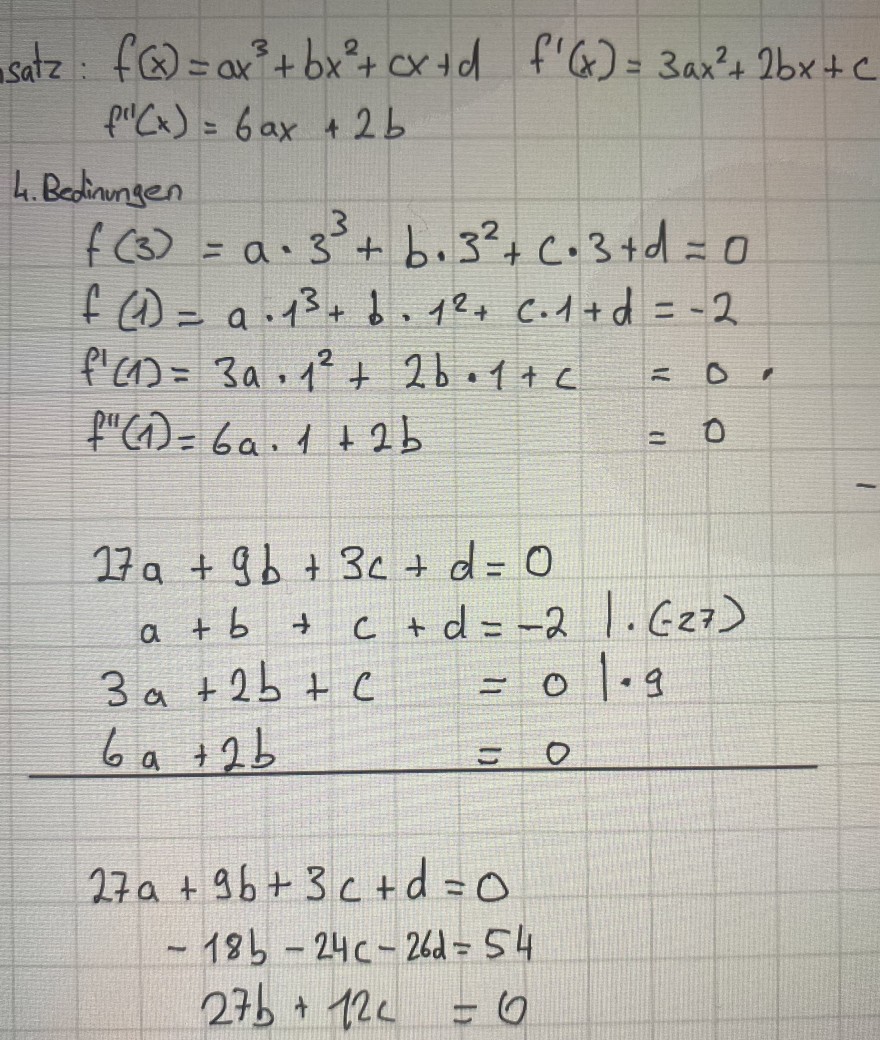 nsatz : f(x) = ax³ + bx² + cx + d f'(x) = 3ax² + 2bx + c
f''(x) = 6ax + 2b
4. Bedinungen
f(3) = a · 3³ + b · 3² + c · 3 + d = 0
f(1) = a · 1³ + b · 1² + c · 1 + d = -2
f'(1) = 3a · 1² + 2b · 1 + c = 0
f''(1) = 6a · 1 + 2b = 0
27a + 9b + 3c + d = 0
a + b + c + d = -2 | · (-27)
3a + 2b + c = 0 | · 9
6a + 2b = 0
27a + 9b + 3c + d = 0
- 18b - 24c - 26d = 54
27b + 12c = 0